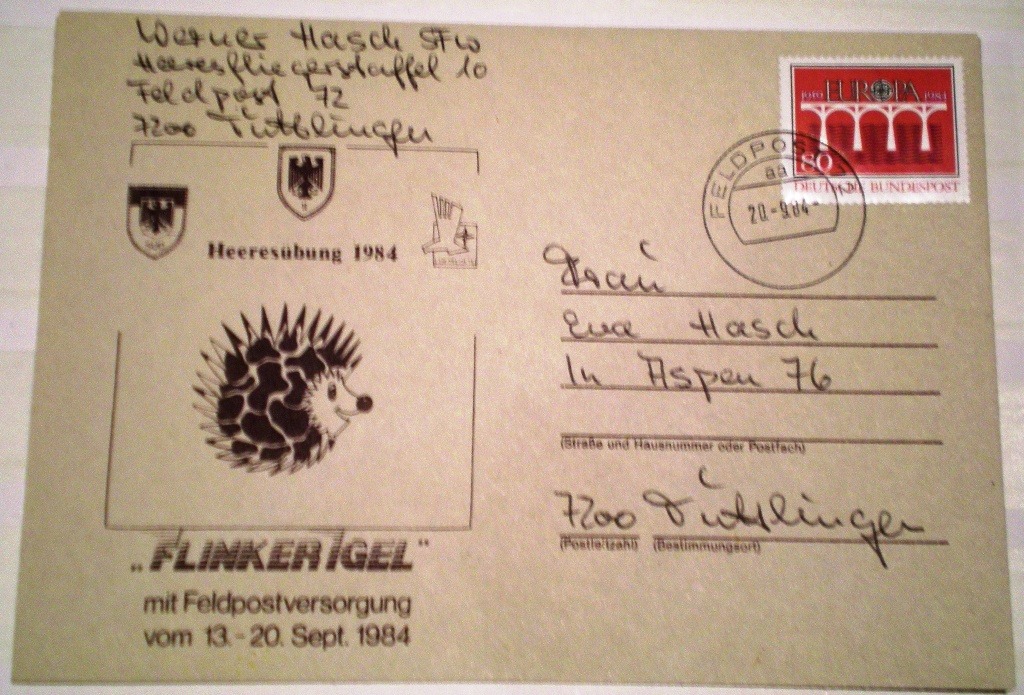 Werner Hasch SFw
Heeresfliegerstaffel 10
Feldpost 72
7200 Tuttlingen
Heeresübung 1984
„FLINKER IGEL“
mit Feldpostversorgung
vom 13.-20. Sept. 1984
EUROPA
1959 1984
80
DEUTSCHE BUNDESPOST
FELDPOST
aa
20.-9.84-
Frau
Eva Hasch
In Aspen 76
(Straße und Hausnummer oder Postfach)
7200 Tuttlingen
(Postleitzahl) (Bestimmungsort)